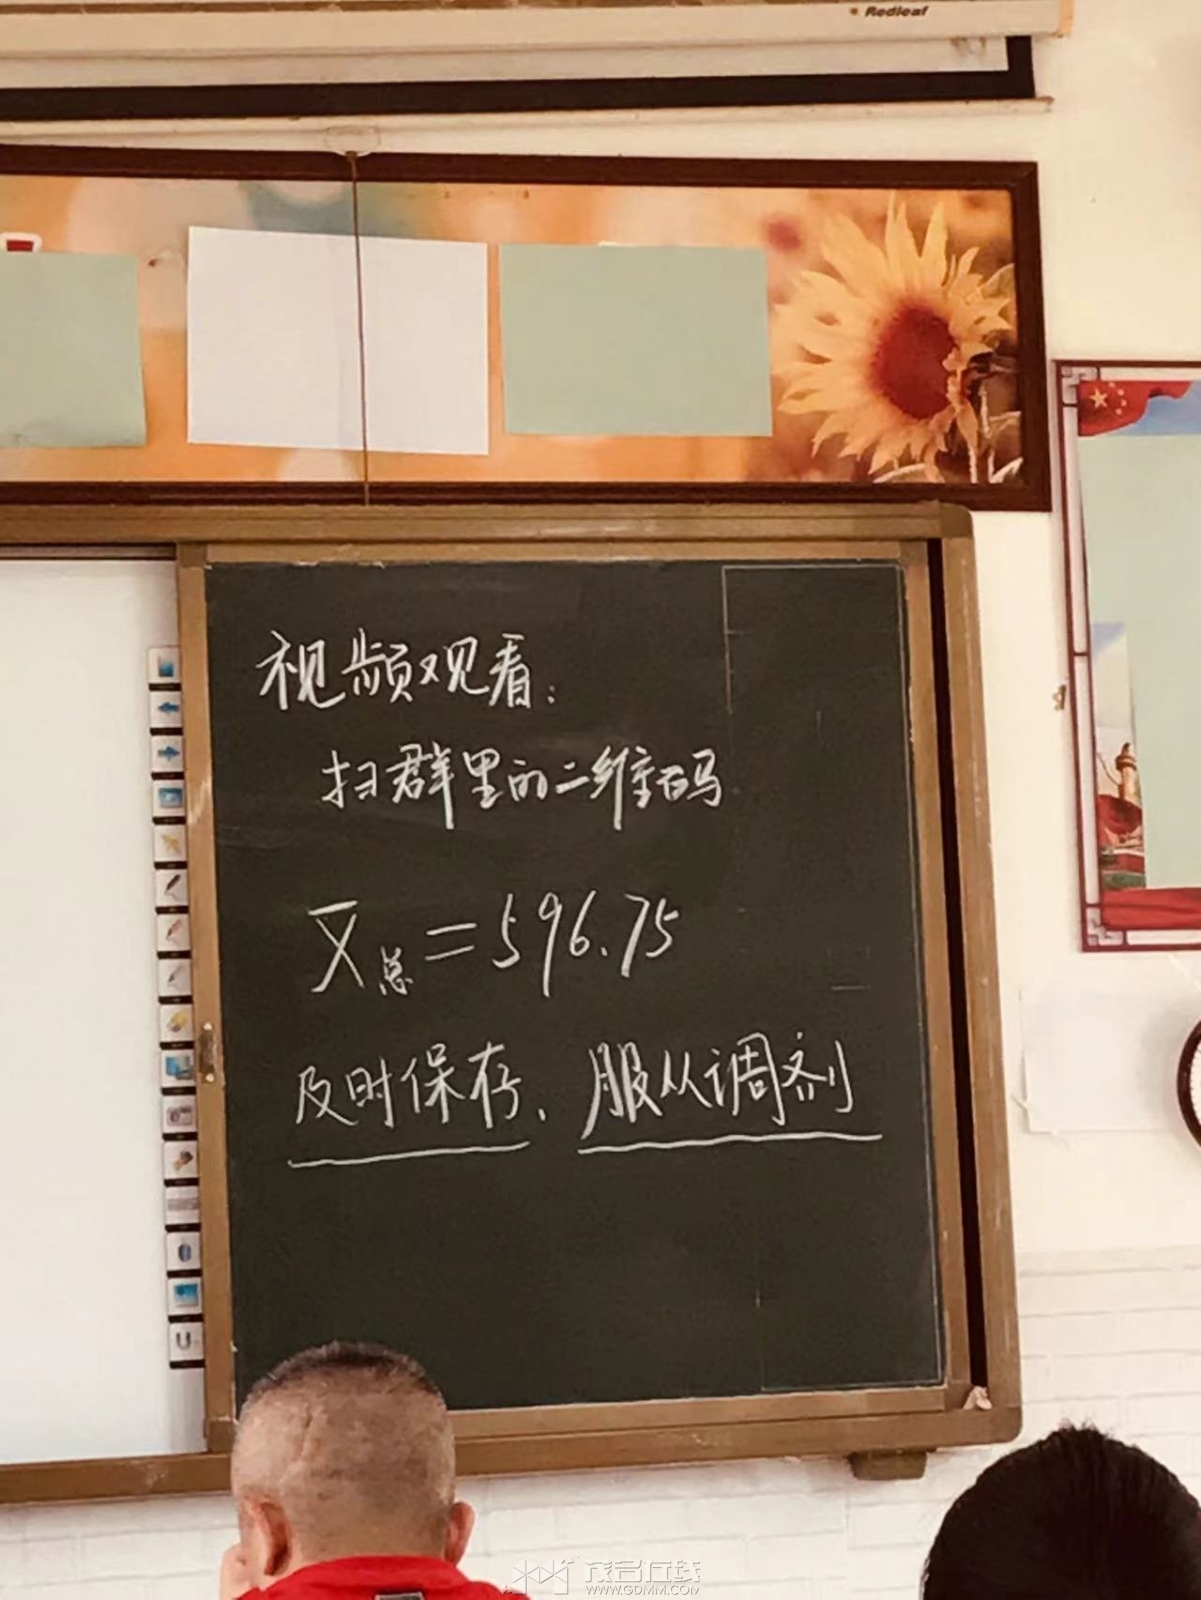 Redleaf
视频观看:
扫群里的二维码
X̅总=596.75
及时保存、服从调剂
茂名在线
WWW.GDMM.COM